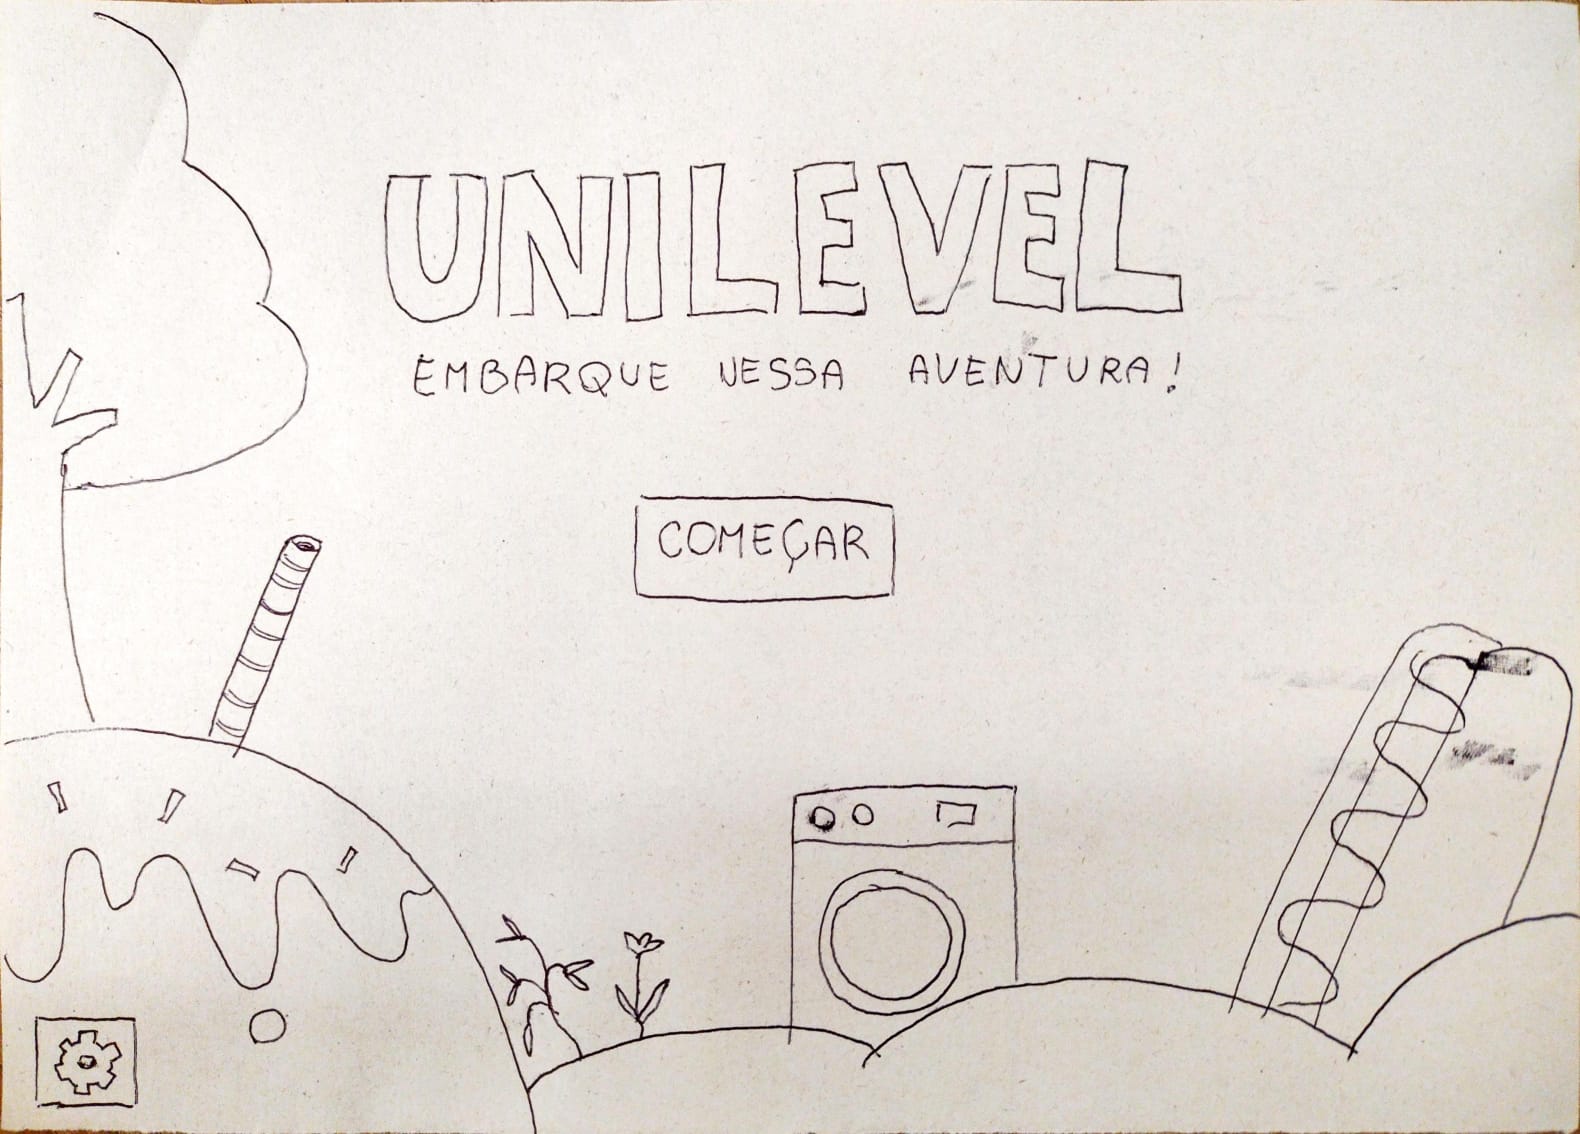 UNILEVEL
EMBARQUE NESSA AVENTURA!
COMEÇAR